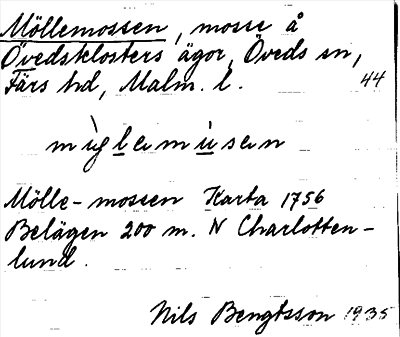 Möllemossen, mosse å
Övedsklosters ägor, Öveds sn,
Färs hd, Malm. l. 44
Mölle-mossen Karta 1756
Belägen 200 m. N Charlotten-
lund.
Nils Bengtsson 1935